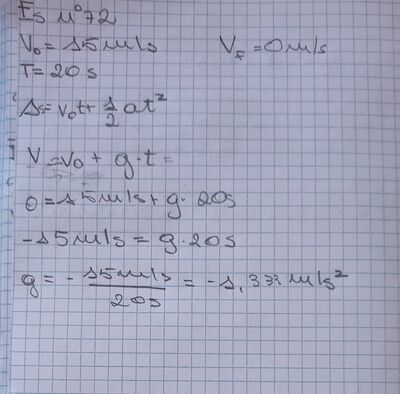 Es n°72
V₀ = 15 m/s V_f = 0 m/s
T = 20 s
Δs = v₀t + 1/2 at²
V = v₀ + g · t =
0 = 15 m/s + g · 20s
-15 m/s = g · 20s
g = - 15 m/s / 20s = -1,333 m/s²